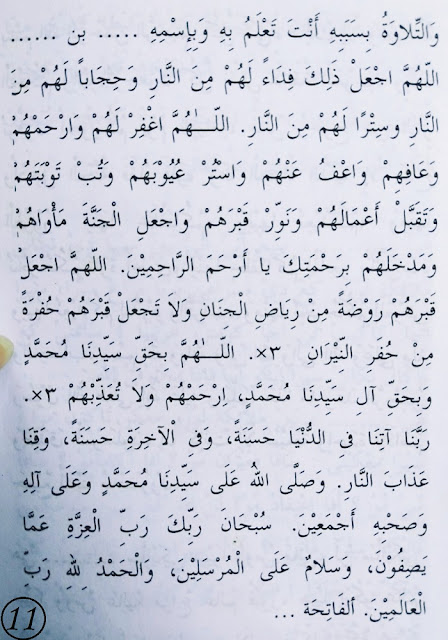 وَالتِّلَاوَةُ بِسَبَبِهِ أَنْتَ تَعْلَمُ بِهِ وَبِاِسْمِهِ ..... بن ......
اللّهُمَّ اجْعَلْ ذَلِكَ فِدَاءً لَهُمْ مِنَ النَّارِ وَحِجَاباً لَهُمْ مِنَ
النَّارِ وسِتْرًا لَهُمْ مِنَ النَّار. اللّـــٰهُمَّ اغْفِرْ لَهُمْ وَارْحَمْهُمْ
وَعَافِهِمْ وَاعْفُ عَنْهُمْ وَاسْتُرْ عُيُوْبَهُمْ وَتُبْ تَوْبَتَهُمْ
وَتَقَبَّلْ أَعْمَالَهُمْ وَنَوِّرْ قَبْرَهُمْ وَاجْعَلِ الْجَنَّةَ مَأْوَاهُمْ
وَمَدْخَلَهُمْ بِرَحْمَتِكَ يا أَرْحَمَ الرَّاحِمِيْنَ. اللّهمَّ اجْعَلْ
قَبْرَهُمْ رَوْضَةً مِنْ رِيَاضِ الْجِنَانِ وَلاَ تَجْعَلْ قَبْرَهُمْ حُفْرَةً
مِنْ حُفَرِ النِّيْرَانِ ×٣. اللّـــٰهُمَّ بِحَقِّ سَيِّدِنَا مُحَمَّدٍ
وَبِحَقِّ آلِ سَيِّدِنَا مُحَمَّدٍ، اِرْحَمْهُمْ وَلاَ تُعَذِّبْهُمْ ×٣.
رَبَّنَا آتِنَا فِى الدُّنْيَا حَسَنَةً، وَفِى الْآخِرَةِ حَسَنَةً، وَقِنَا
عَذَابَ النَّارِ. وَصَلَّى اللهُ عَلَى سَيِّدِنَا مُحَمَّدٍ وَعَلَى آلِهِ
وَصَحْبِهِ أَجْمَعِيْنَ. سُبْحَانَ رَبِّكَ رَبِّ الْعِزَّةِ عَمَّا
يَصِفُوْنَ، وَسَلَامٌ عَلَى الْمُرْسَلِيْنَ، وَالْحَمْدُ لِلهِ رَبِّ
الْعَالَمِيْنَ. ألفَاتِحَة ...
11